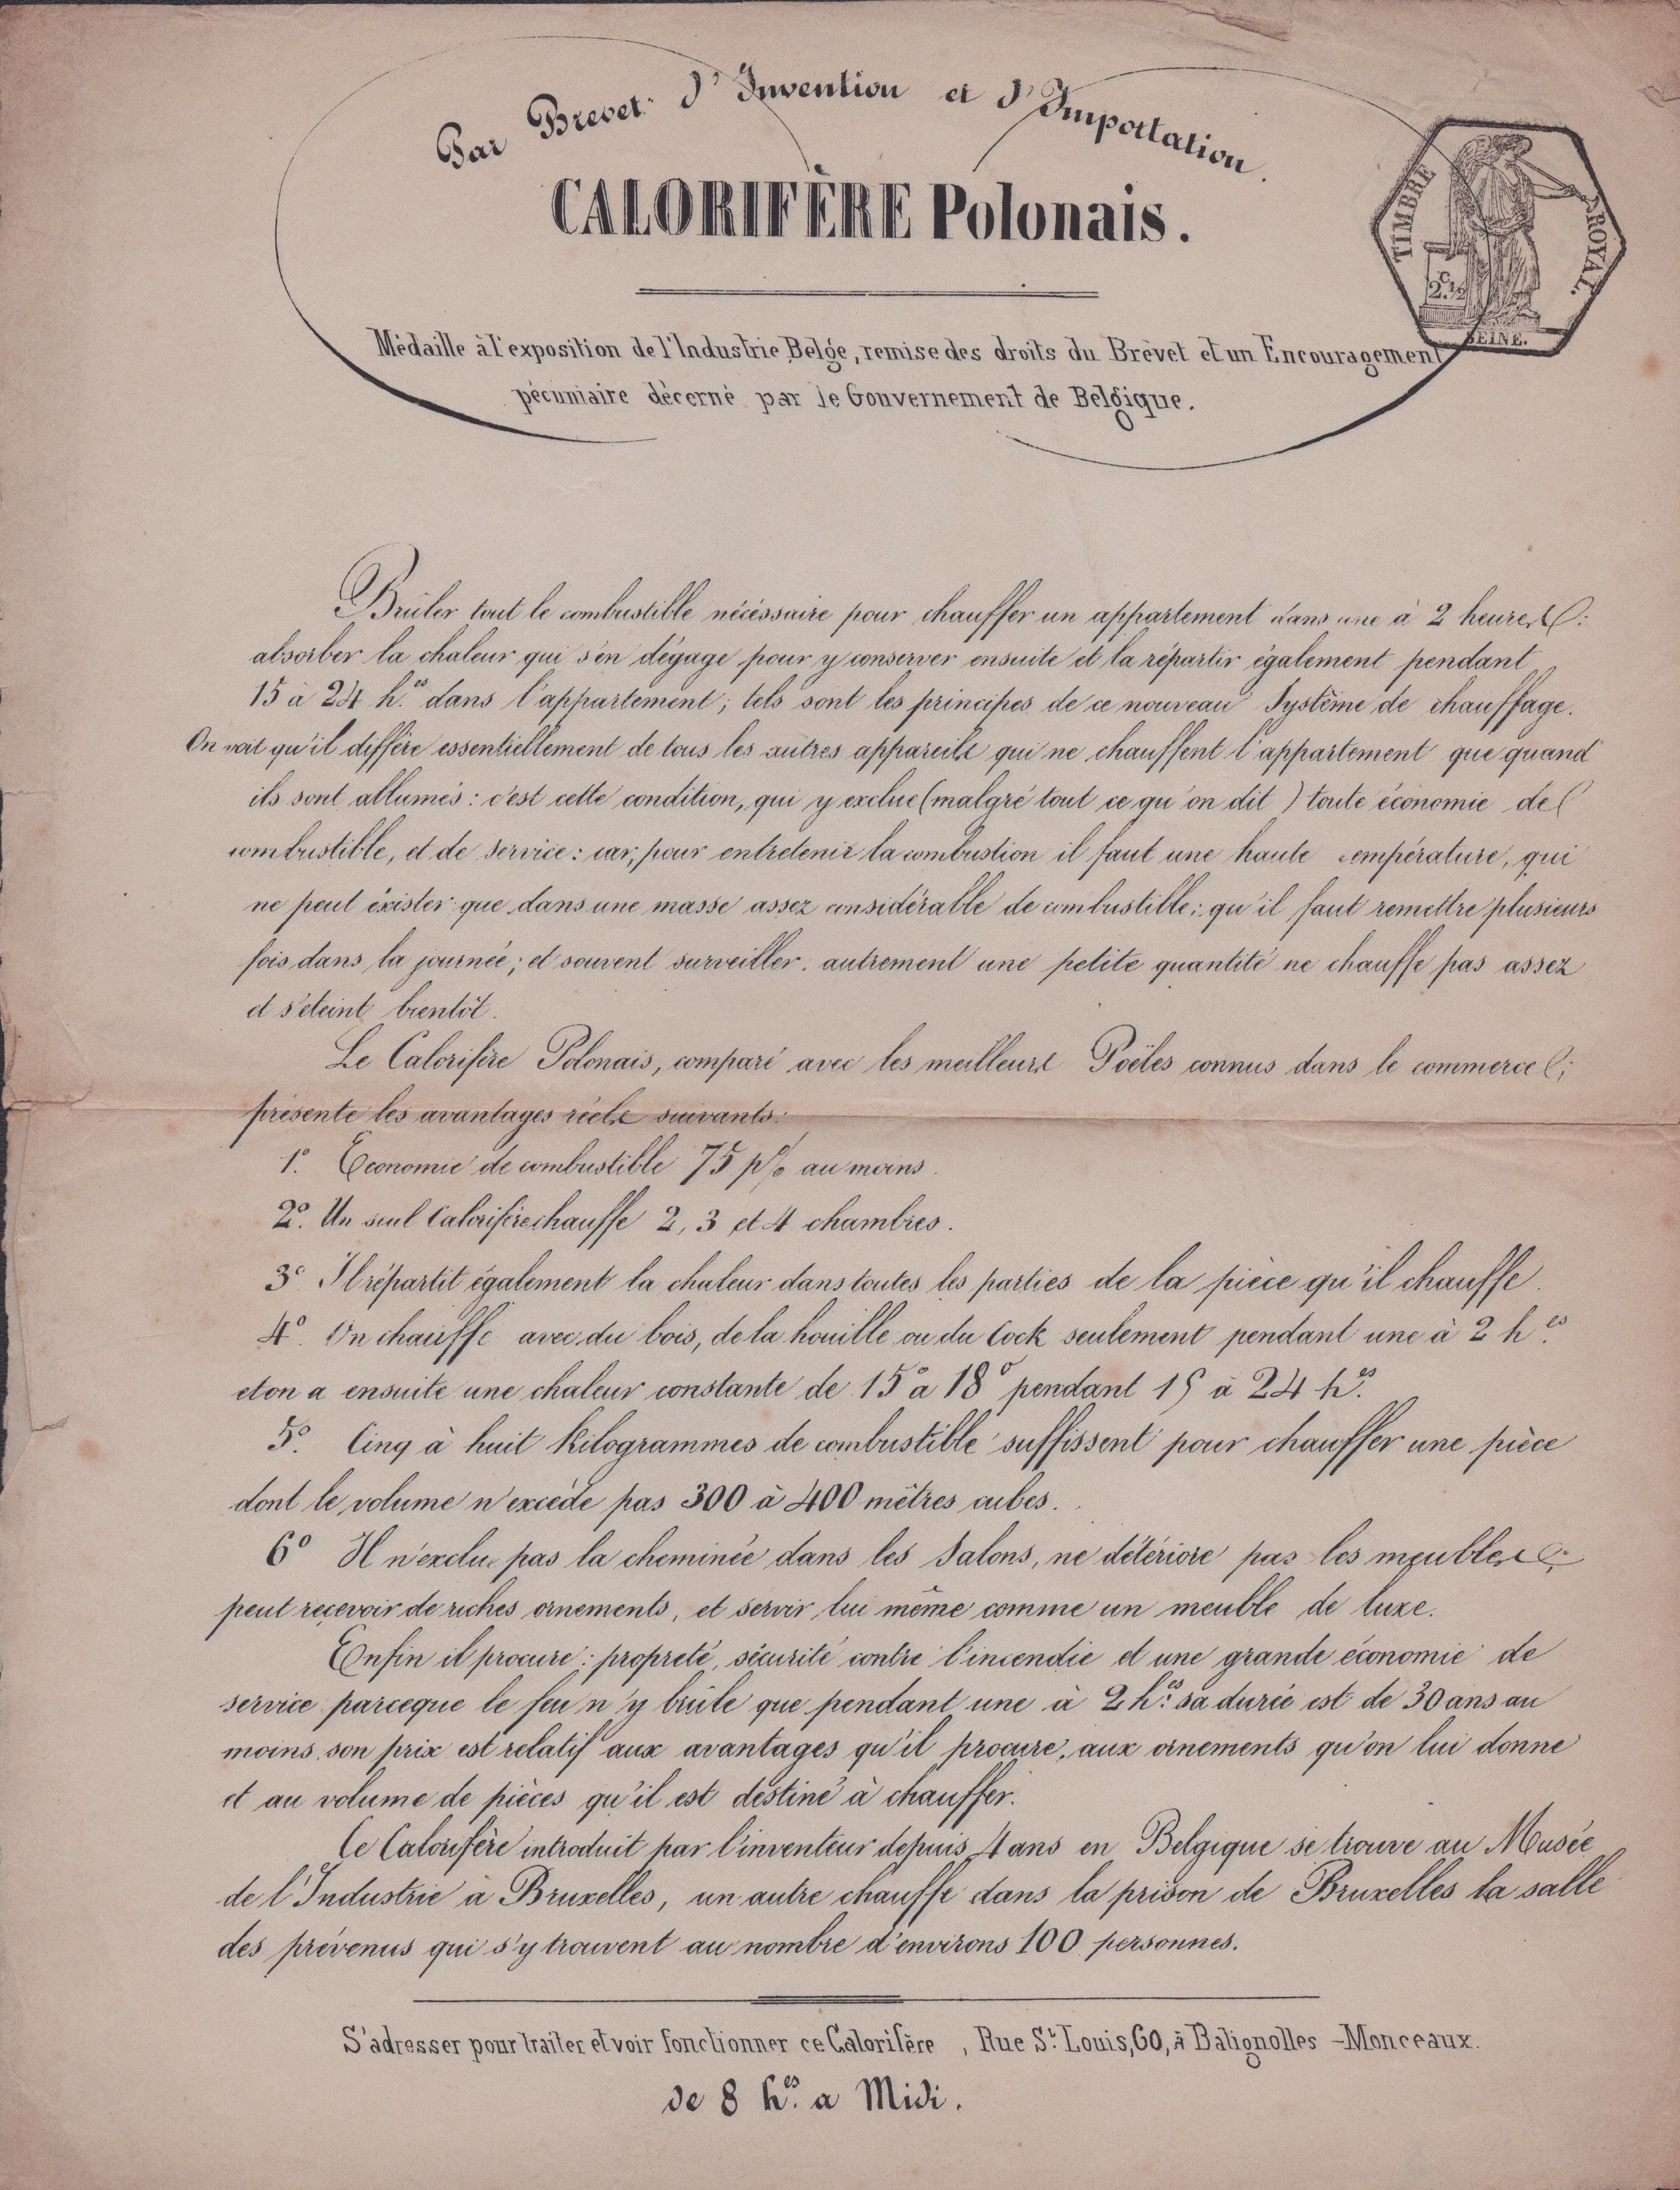 Par Brevet d'Invention et d'Importation.
CALORIFÈRE Polonais.
TIMBRE ROYAL.
2.c ½
SEINE.
Médaille à l'exposition de l'Industrie Belge, remise des droits du Brèvet et un Encouragement
pécuniaire décerné par le Gouvernement de Belgique.
Brûler tout le combustible nécéssaire pour chauffer un appartement dans une à 2 heures:
absorber la chaleur qui s'en dégage pour y conserver ensuite et la répartir également pendant
15 à 24 h.es dans l'appartement; tels sont les principes de ce nouveau Système de chauffage.
On voit qu'il diffère essentiellement de tous les autres appareils qui ne chauffent l'appartement que quand
ils sont allumés: c'est cette condition, qui y exclue (malgré tout ce qu'on dit) toute économie de
combustible, et de service: car, pour entretenir la combustion il faut une haute température, qui
ne peut éxister que dans une masse assez considérable de combustible; qu'il faut remettre plusieurs
fois dans la journée; et souvent surveiller. autrement une petite quantité ne chauffe pas assez
et s'éteint bientôt.
Le Calorifère Polonais, comparé avec les meilleurs Poëles connus dans le commerce;
présente les avantages réels suivants:
1.° Economie de combustible 75 p% au moins.
2.° Un seul Calorifère chauffe 2, 3 et 4 chambres.
3.° Il répartit également la chaleur dans toutes les parties de la pièce qu'il chauffe.
4.° On chauffe avec du bois, de la houille ou du Cock seulement pendant une à 2 h.es
et on a ensuite une chaleur constante de 15° a 18° pendant 15 à 24 h.es
5.° Cinq à huit Kilogrammes de combustible suffissent pour chauffer une pièce
dont le volume n'excède pas 300 à 400 mètres cubes.
6° Il n'exclue pas la cheminée dans les Salons, ne détériore pas les meubles;
peut reçevoir de riches ornements, et servir lui même comme un meuble de luxe.
Enfin il procure: propreté, sécurité contre l'incendie et une grande économie de
service parceque le feu n'y brûle que pendant une à 2 h.es sa durée est de 30 ans au
moins. son prix est relatif aux avantages qu'il procure, aux ornements qu'on lui donne
et au volume de pièces qu'il est destiné à chauffer.
Ce Calorifère introduit par l'inventeur depuis 4 ans en Belgique se trouve au Musée
de l'Industrie à Bruxelles, un autre chauffe dans la prison de Bruxelles la salle
des prévenus qui s'y trouvent au nombre d'environs 100 personnes.
S'adresser pour traiter et voir fonctionner ce Calorifère, Rue S.t Louis, 60, à Batignolles-Monceaux.
de 8 h.es a Midi.